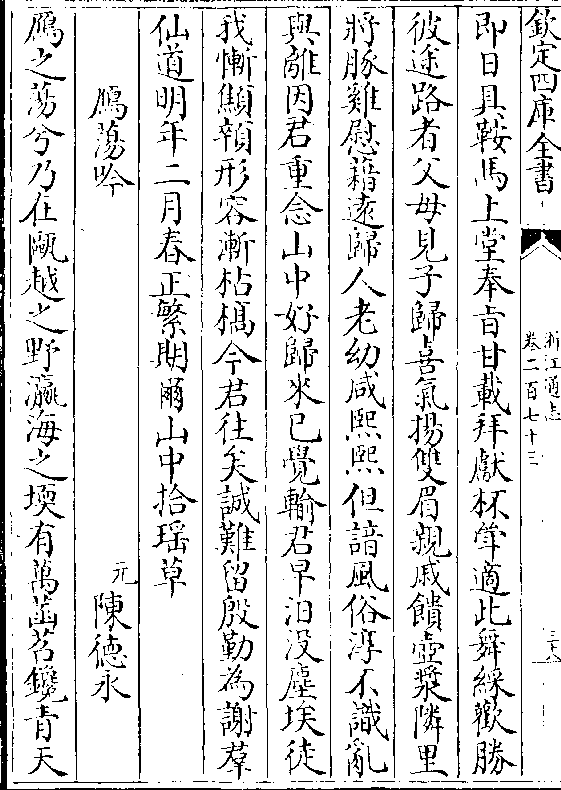 欽定四庫全書
浙江通志
卷二百七十三
三十六
即日具鞍馬上堂奉旨甘載拜獻杯斝適此舞綵歡勝
彼途路者父母見子歸喜氣揚雙眉親戚饋壺漿隣里
將豚雞慰藉逺歸人老幼咸熙熙但諳風俗淳不識亂
與離因君重念山中好歸來已覺輸君早汨没塵埃徒
我慚顦顇形容漸枯槁今君往矣誠難留殷勤為謝羣
仙道明年二月春正繁期爾山中拾瑶草
鴈蕩吟
元陳徳永
鴈之蕩兮乃在甌越之野瀛海之堧有萬菡萏鑱青天